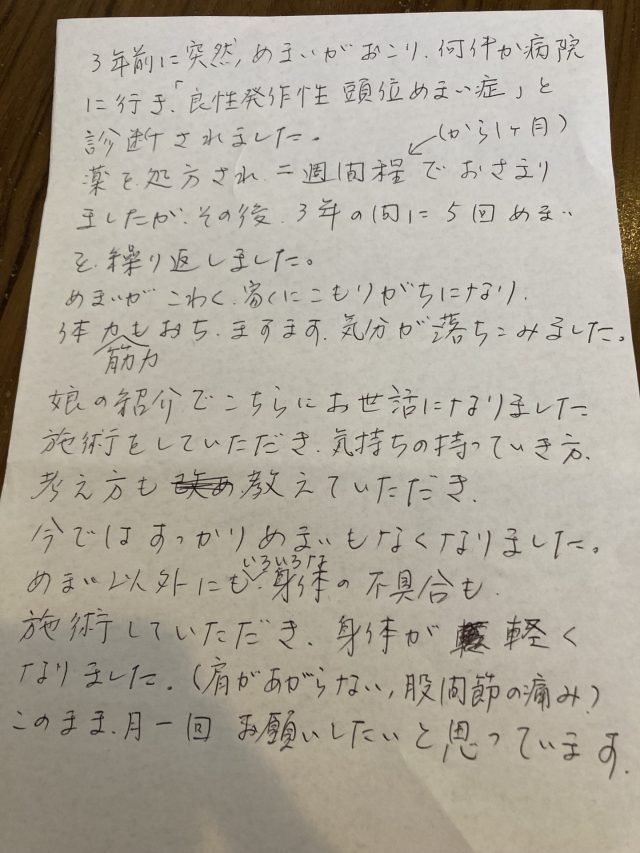 3年前に突然、めまいがおこり、何件か病院
に行き、「良性発作性頭位めまい症」と
診断されました。
(から1ヶ月)
薬を処方され、二週間程で おさまり
ましたが、その後、3年の間に5回めまい
を、繰り返しました。
めまいが こわく、家にこもりがちになり、
体力もおち、ますます、気分が落ちこみました。
筋力
娘の紹介でこちらにお世話になりました
施術をしていただき、気持ちの持っていき方、
考え方も 教えていただき、
今ではすっかりめまいもなくなりました。
いろいろな
めまい以外にも、身体の不具合も、
施術していただき、身体が 軽く
なりました。(肩があがらない、股間節の痛み)
このまま、月一回 お願いしたいと思っています。